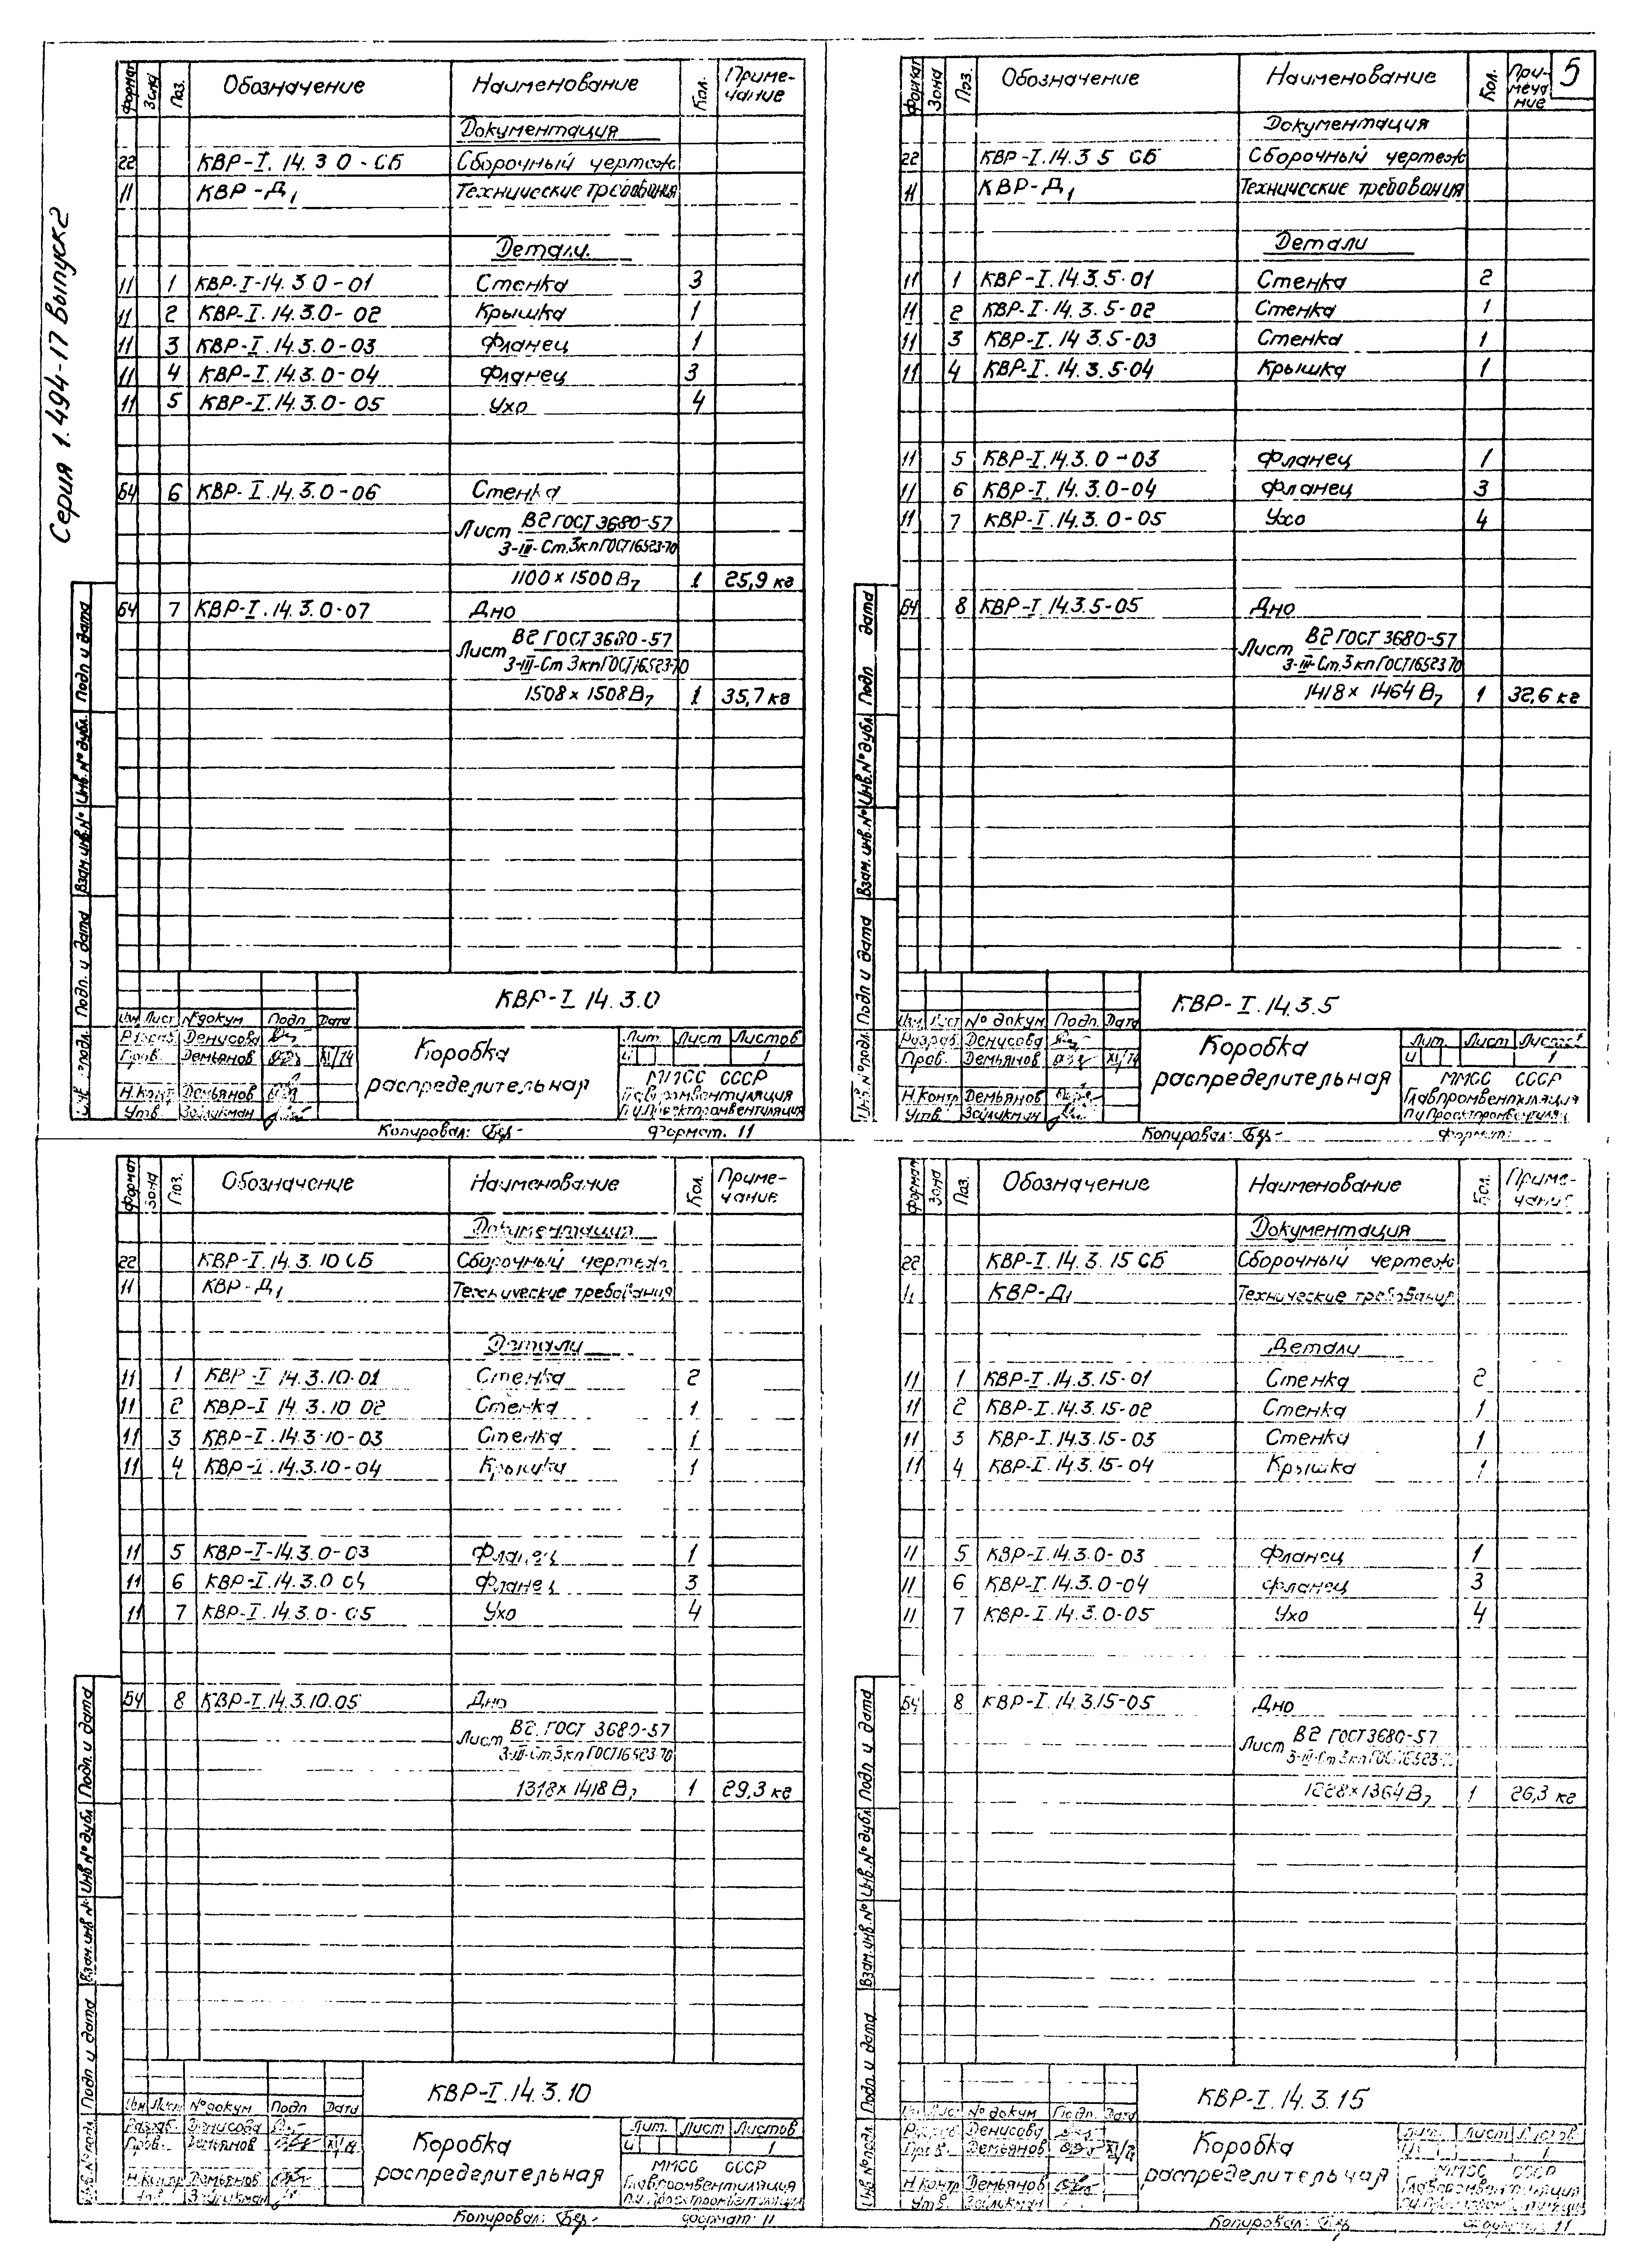 Серия 1.494-17 Выпуск 2
5
Формат Зона Поз. Обозначение Наименование Кол. Примечание
Документация
22 КВР-I.14.3 0-СБ Сборочный чертеж
11 КВР-Д1 Технические требования
Детали
11 1 КВР-I-14.3 0-01 Стенка 3
11 2 КВР-I.14.3.0-02 Крышка 1
11 3 КВР-I.14.3.0-03 Фланец 1
11 4 КВР-I.14.3.0-04 Фланец 3
11 5 КВР-I.14.3.0-05 Ухо 4
БЧ 6 КВР-I.14.3.0-06 Стенка
Лист В2 ГОСТ 3680-57
3-III-Ст.3кп ГОСТ 16523-70
1100 x 1500 В7 1 25,9 кг
БЧ 7 КВР-I.14.3.0-07 Дно
Лист В2 ГОСТ 3680-57
3-III-Ст 3кп ГОСТ 16523-70
1508 x 1508 В7 1 35,7 кг
Подп и дата
Инв.№ дубл.
Взам.инв.№
Подп. и дата
КВР-I 14.3.0
Изм Лист № докум Подп Дата
Разраб. Денисова
Пров. Демьянов XI/74
Н.Контр Демьянов
Утв. Зайликман
Коробка
распределительная
Лит. Лист Листов
И 1
ММСС СССР
Главпромвентиляция
ПИ Проектпромвентиляция
Копировал:
Формат. 11
Формат Зона Поз. Обозначение Наименование Кол. Примечание
Документация
22 КВР-I.14.3 5 СБ Сборочный чертеж
11 КВР-Д1 Технические требования
Детали
11 1 КВР-I.14.3.5-01 Стенка 2
11 2 КВР-I.14.3.5-02 Стенка 1
11 3 КВР-I.14 3.5-03 Стенка 1
11 4 КВР-I.14.3.5-04 Крышка 1
11 5 КВР-I.14.3.0-03 Фланец 1
11 6 КВР-I.14.3.0-04 Фланец 3
11 7 КВР-I.14.3.0-05 Ухо 4
БЧ 8 КВР-I.14.3.5-05 Дно
Лист В2 ГОСТ 3680-57
3-III-Ст.3кп ГОСТ 16523 70
1418 x 1464 В7 1 32,6 кг
Подп дата
Инв.№ дубл
Взам.инв.№
Подп и дата
Инв.№ подл
КВР-I.14.3.5
Изм Лист № докум. Подп. Дата
Разраб. Денисова
Пров. Демьянов XI/74
Н.Контр Демьянов
Утв. Зайликман
Коробка
распределительная
Лит. Лист Листов
И 1
ММСС СССР
Главпромвентиляция
ПИ Проектпромвентиляц
Копировал:
Формат:
Формат Зона Поз. Обозначение Наименование Кол. Примечание
Документация
22 КВР-I.14.3.10 СБ Сборочный чертеж
11 КВР-Д1 Технические требования
Детали
11 1 КВР-I 14.3.10-01 Стенка 2
11 2 КВР-I 14.3.10 02 Стенка 1
11 3 КВР-I.14.3.10-03 Стенка 1
11 4 КВР-I.14.3.10-04 Крышка 1
11 5 КВР-I-14.3.0-03 Фланец 1
11 6 КВР-I.14.3.0 04 Фланец 3
11 7 КВР-I.14.3.0-05 Ухо 4
БЧ 8 КВР-I.14.3.10.05 Дно
Лист В2. ГОСТ 3680-57
3-III-Ст.3кп ГОСТ 16523-70
1318 x 1418 В7 1 29,3 кг
Подп. и дата
Инв № дубл
Взам.инв №
Подп и дата
Инв.№ подл.
КВР-I.14.3.10
Изм Лист № докум Подп Дата
Разраб. Денисова
Пров. Демьянов XI/74
Н.Контр Демьянов
Утв. Зайликман
Коробка
распределительная
Лит. Лист Листов
И 1
ММСС СССР
Главпромвентиляция
ПИ Проектпромвентиляция
Копировал:
Формат 11
Формат Зона Поз. Обозначение Наименование Кол. Примечание
Документация
22 КВР-I.14.3.15 СБ Сборочный чертеж
11 КВР-Д1 Технические требования
Детали
11 1 КВР-I.14.3.15-01 Стенка 2
11 2 КВР-I.14.3.15-02 Стенка 1
11 3 КВР-I.14.3.15-03 Стенка 1
11 4 КВР-I.14.3.15-04 Крышка 1
11 5 КВР-I.14.3.0-03 Фланец 1
11 6 КВР-I.14.3.0-04 Фланец 3
11 7 КВР-I.14.3.0-05 Ухо 4
БЧ 8 КВР-I.14.3.15-05 Дно
Лист В2 ГОСТ 3680-57
3-III-Ст 3кп ГОСТ 16523-
1228 x 1364 В7 1 26,3 кг
Подп и дата
Инв.№ дубл
Взам.инв.№
Подп и дата
Инв.№ подл
КВР-I.14.3.15
Изм Лист № докум Подп. Дата
Разраб Денисова
Пров. Демьянов XI/74
Н.Контр Демьянов
Утв. Зайликман
Коробка
распределительная
Лит. Лист Листов
И 1
ММСС СССР
Главпромвентиляция
ПИ Проектпромвентиляция
Копировал:
Формат 11